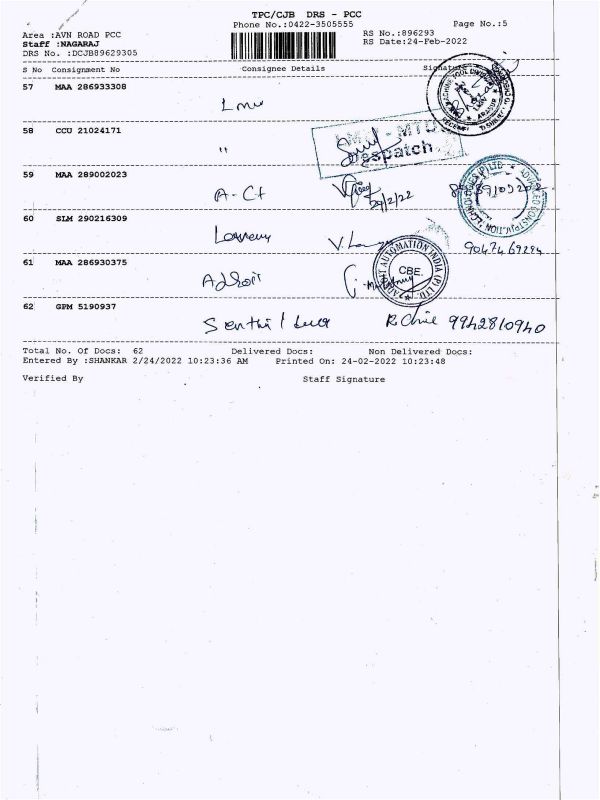 TPC/CJB DRS - PCC
Phone No.:0422-3505555 Page No.:5
Area :AVN ROAD PCC RS No.:896293
Staff :NAGARAJ RS Date:24-Feb-2022
DRS No. :DCJB89629305
S No Consignment No Consignee Details Signature
57 MAA 286933308
58 CCU 21024171
"
Despatch
59 MAA 289002023
A-Ct
60 SLM 290216309
9047469294
AUTOMATION INDIA (P) LTD.
CBE.
61 MAA 286930375
Adroit
62 GPM 5190937
Senthil 9942810940
Total No. Of Docs: 62 Delivered Docs: Non Delivered Docs:
Entered By :SHANKAR 2/24/2022 10:23:36 AM Printed On: 24-02-2022 10:23:48
Verified By Staff Signature